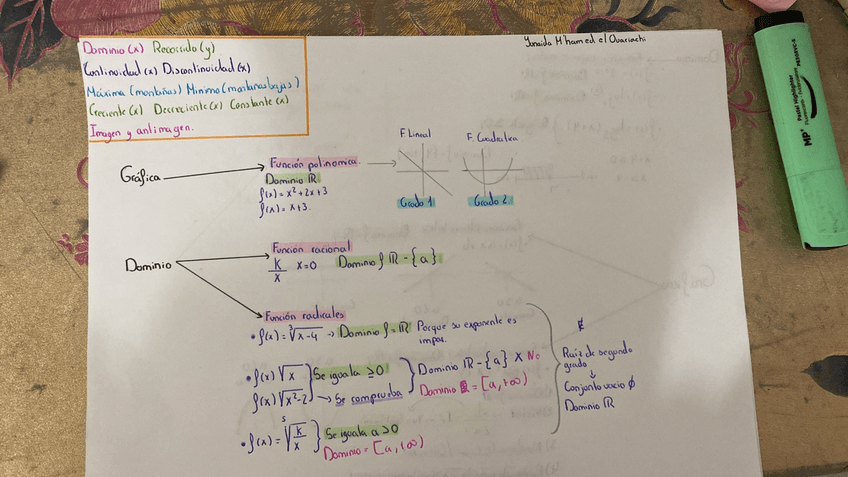 Yonaida M'hamed el Ouariachi
Dominio (x) Recorrido (y)
Continuidad (x) Discontinuidad (x)
Máxima (montañas) Mínimo (montañas bajas)
Creciente (x) Decreciente (x) Constante (x)
Imagen y antimagen.
Gráfica
Función polinomica.
Dominio ℝ
f(x) = x²+2x+3
f(x) = x+3.
F. Lineal
Grado 1
F. Cuadratica
Grado 2
Dominio
Función racional
K/x x=0 Dominio f ℝ - {a}
Función radicales
• f(x) = ³√x-4 → Dominio f = ℝ Porque su exponente es
impar.
• f(x) √x } Se iguala ≥0
f(x) √x²-2 } → Se comprueba
Dominio ℝ - {a} X No
Dominio = [a, +∞)
• f(x) = ⁵√K/x } Se iguala a >0
Dominio = [a, +∞)
Raíz de segundo
grado
↓
Conjunto vacio ∅
Dominio ℝ
MP
Pastel Highlighter